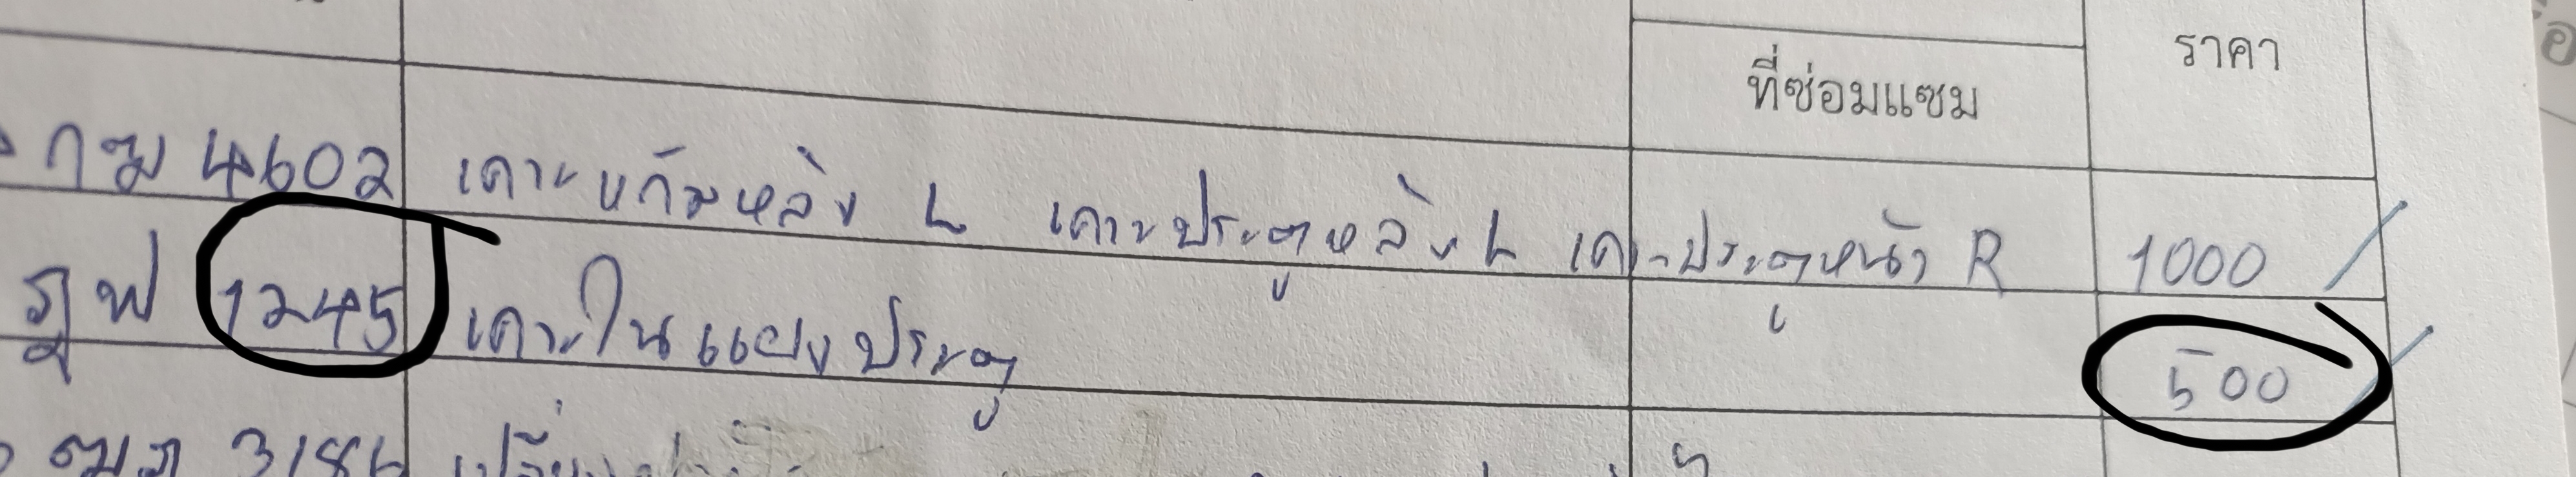 ราคา
ที่ซ่อมแซม
4602 เคาะแก้มหลัง L เคาะประตูหลัง L เคาะประตูหน้า R 1000
ฎฬ 1245 เคาะในแผงประตู 500